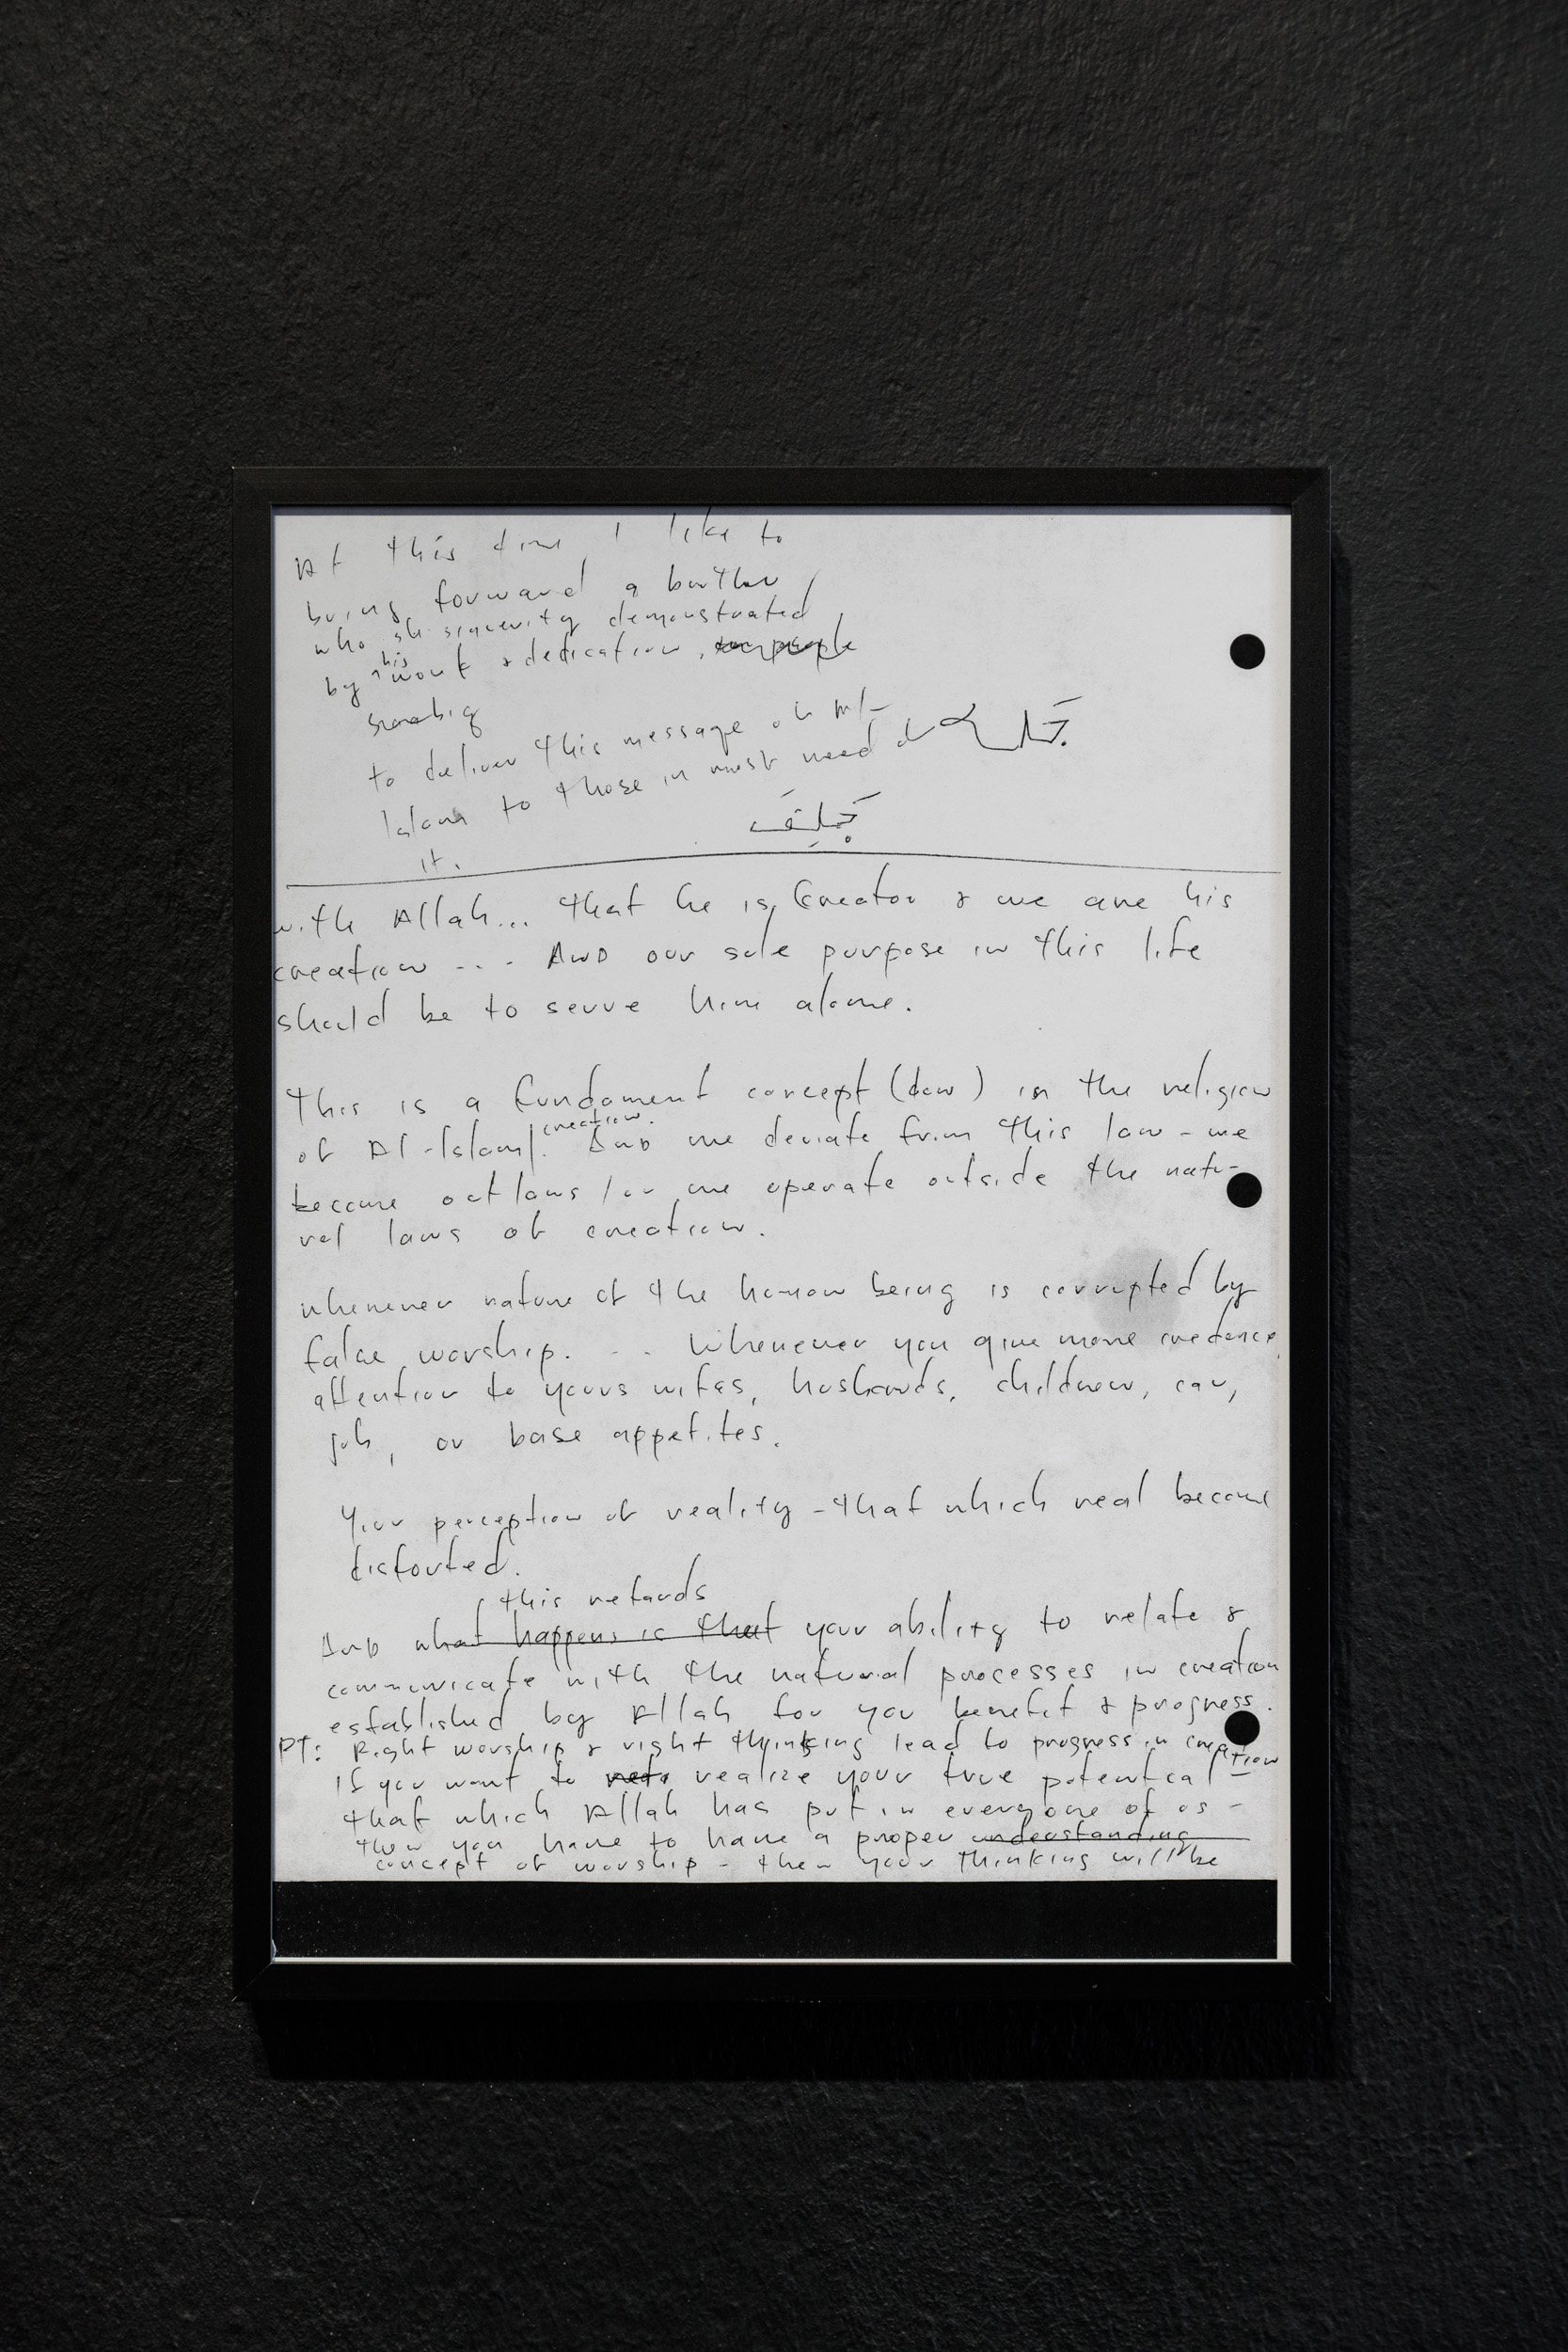 At this time I like to
bring forward a brother
who sincerity demonstrated
his
by work & dedication, our people
to deliver this message of Al-
Islam to those in most need of
it.
with Allah... that he is Creator & we are his
creation --- AND our sole purpose in this life
should be to serve him alone.
This is a fundament concept (law) in the religion
creation.
of Al-Islam. And we deviate from this law - we
become outlaws / or we operate outside the natu-
ral laws of creation.
whenever nature of the human being is corrupted by
false worship. - - . Whenever you give more credence,
attention to yours wifes, husbands, children, car,
job, or base appetites.
Your perception of reality - that which real become
distorted.
this retards
And what happens is that your ability to relate &
communicate with the natural processes in creation
established by Allah for you benefit & progress.
PT: Right worship & right thinking lead to progress in creation
If you want to realize your true potential -
that which Allah has put in everyone of us -
then you have to have a proper understanding
concept of worship - then your thinking will be